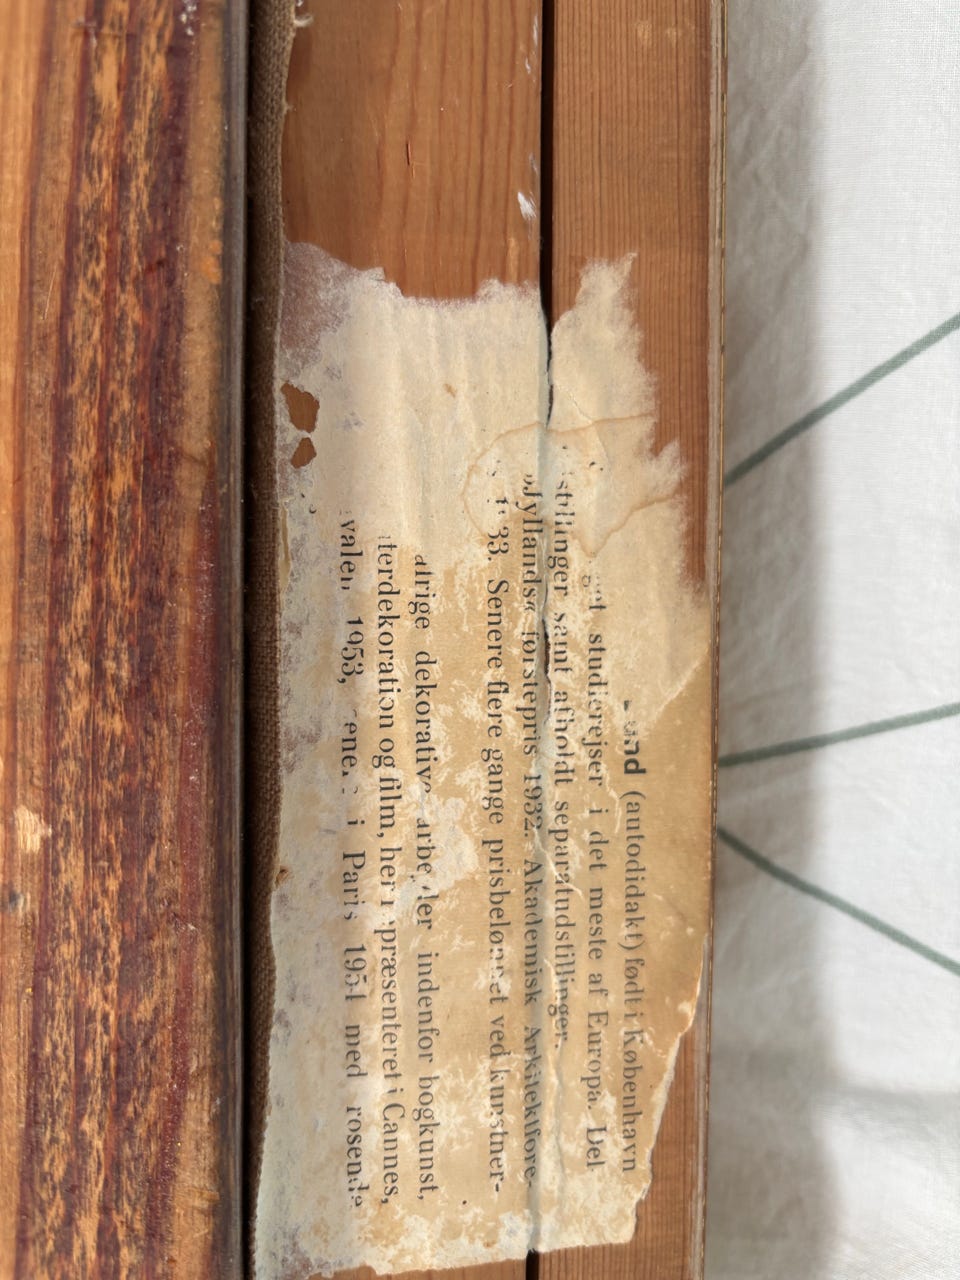 und (autodidakt) født i København
get studierejser i det meste af Europa. Del
stillinger samt afholdt separatudstillinger.
»Jyllands« førstepris 1932. Akademisk Arkitektfore-
33. Senere flere gange prisbelønnet ved kunstner-
atrige dekorative arbejder indenfor bogkunst,
terdekoration og film, her præsenteret i Cannes,
valen 1953, i Paris 1954 med rosende